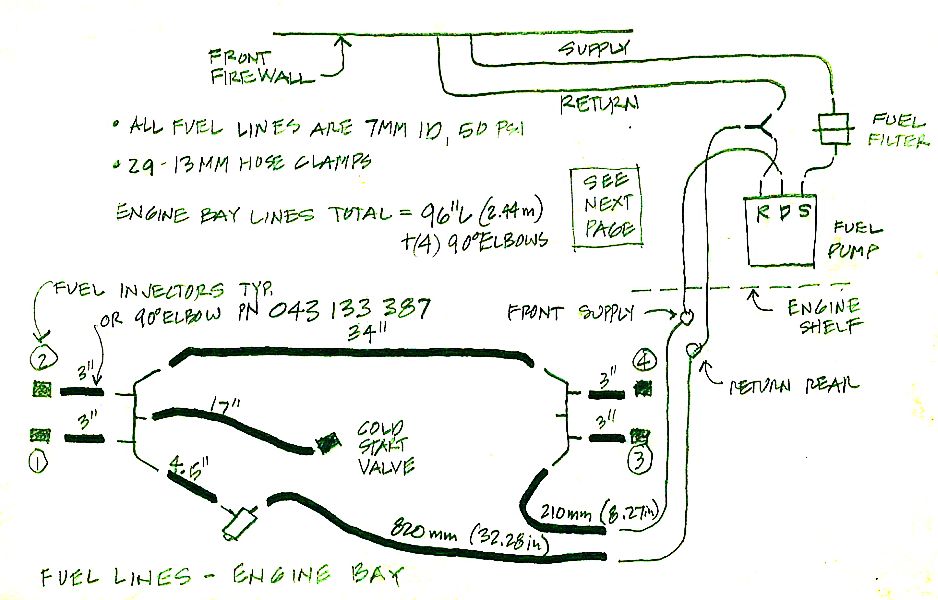 FRONT
FIREWALL
SUPPLY
RETURN
FUEL
FILTER
• ALL FUEL LINES ARE 7MM ID, 50 PSI
• 29-13MM HOSE CLAMPS
ENGINE BAY LINES TOTAL = 96"L (2.44m)
+(4) 90° ELBOWS
SEE
NEXT
PAGE
R D S
FUEL
PUMP
ENGINE
SHELF
FRONT SUPPLY
RETURN REAR
FUEL INJECTORS TYP.
OR 90° ELBOW PN 043 133 387
34"
2
3"
3"
1
17"
COLD
START
VALVE
4.5"
4
3"
3"
3
210mm (8.27in)
820mm (32.28in)
FUEL LINES - ENGINE BAY